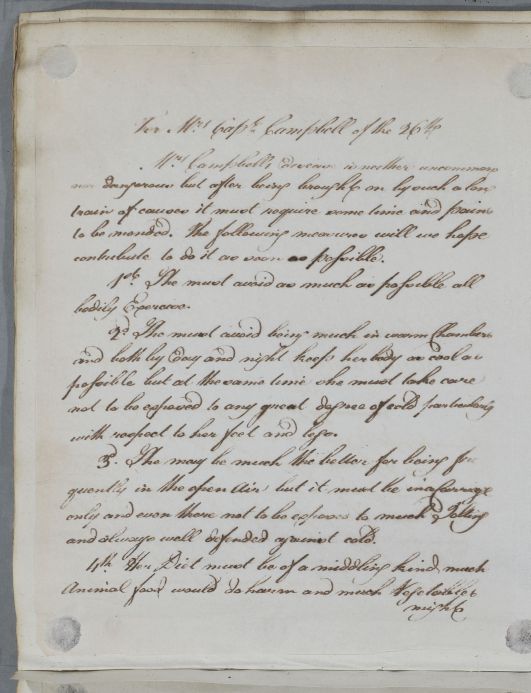 For Mrs Capt. Campbell of the 26th
Mrs Campbells disease is neither uncommon
nor dangerous but after being brought on by such a long
train of causes it must require some time and pains
to be mended. The following measures will we hope
contribute to do it as soon as possible.
1st. She must avoid as much as possible all
bodily Exercise.
2d She must avoid being much in warm Chambers
and both by Day and night keep her body as cool as
possible but at the same time she must take care
not to be exposed to any great degree of cold particularly
with respect to her feet and legs.
3. She may be much the better for being fre
quently in the open Air but it must be in a Carriage
only and even there not to be exposed to much Jolting
and always well defended against cold.
4th Her Diet must be of a middling kind, much
Animal food would do harm and much Vegetables
might